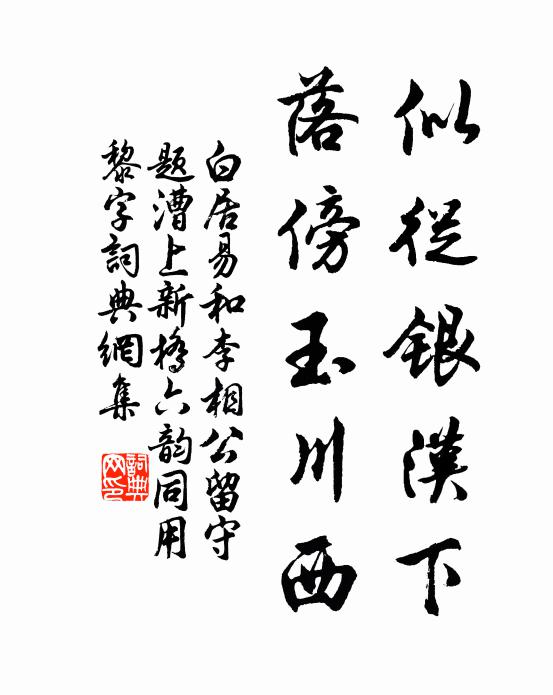 似從銀漢下
落傍玉川西
白居易和李相公留守
題漕上新橋六韵同用
黎字詞典網集
詞典
网印